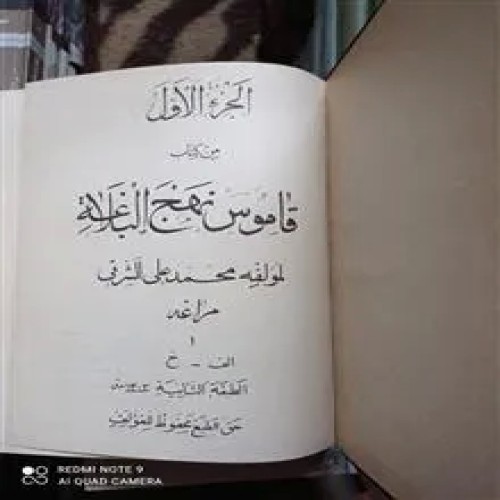 الجزء الأول
من كتاب
قاموس نهج البلاغة
لمؤلفه محمد علي الشرقي
ا
الف - خ
الطبعة الثانية
حق الطبع محفوظ للمؤلف
REDMI NOTE 9
AI QUAD CAMERA